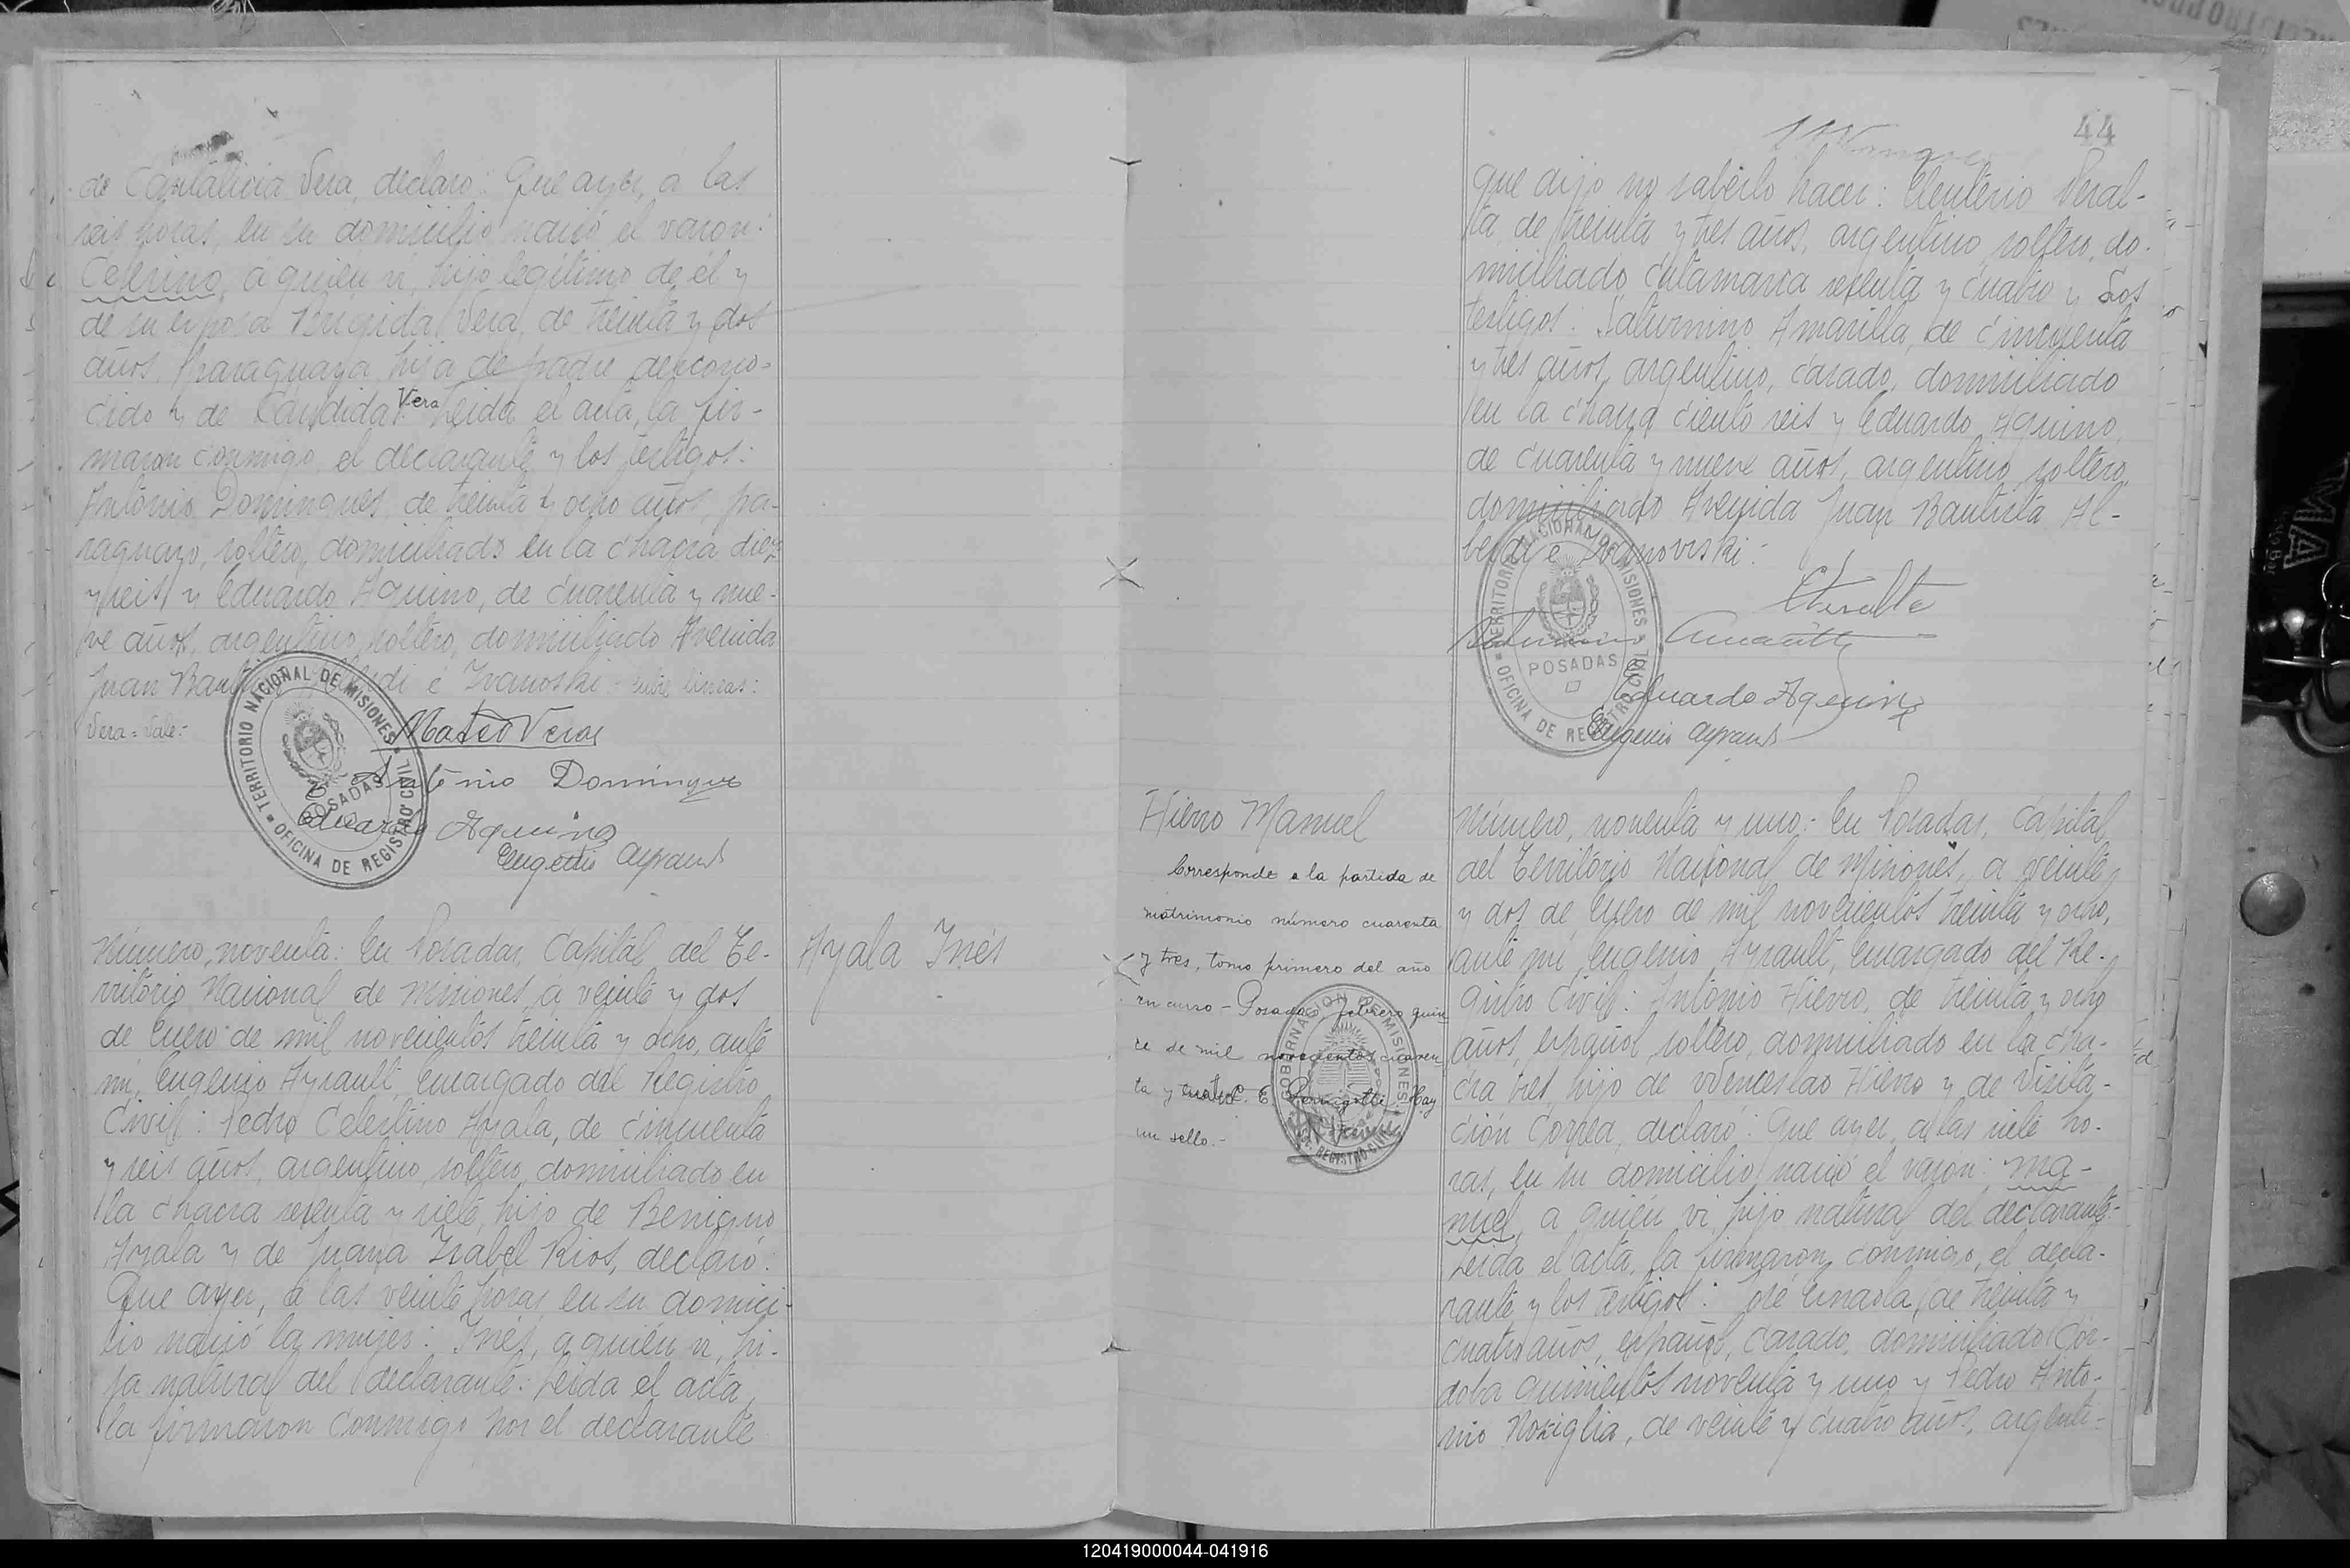 de Cantalicia Vera, declaro: Que ayer, a las
seis horas, en su domicilio nació el varon:
Ceferino, a quien vi, hijo legítimo de él y
de su esposa Brígida Vera, de treinta y dos
años, paraguaya, hija de padre descono-
cido y de Candida Vera Leida el acta, la fir-
maron conmigo, el declarante y los testigos:
Antonio Domingues, de treinta y ocho años, pa-
raguayo, soltero, domiciliado en la chacra diez
y seis y Eduardo Aquino, de cuarenta y nue-
ve años, argentino, soltero, domiciliado Avenida
Juan Bautista Alberdi e Ivanoski - entre lineas:
Vera = Vale:-
Mateo Vera
Antonio Domingues
Eduardo Aquino
Eugenio Ayrault
TERRITORIO NACIONAL DE MISIONES
POSADAS
OFICINA DE REGISTRO CIVIL
Ayala Inés
Número, noventa: En Posadas, Capital del Te-
rritorio Nacional de Misiones, a veinte y dos
de Enero de mil novecientos treinta y ocho, ante
mi, Eugenio Ayrault, Encargado del Registro
Civil: Pedro Celestino Ayala, de cincuenta
y seis años, argentino, soltero, domiciliado en
la chacra setenta y siete, hijo de Benigno
Ayala y de Juana Isabel Rios, declaró:
Que ayer, a las veinte horas, en su domici-
lio nació la mujer: Inés, a quien vi, hi-
ja natural del declarante: Leida el acta,
la firmaron conmigo por el declarante
44
que dijo no saberlo hacer: Eleuterio Peral-
ta, de treinta y tres años, argentino, soltero, do-
miciliado Catamarca setenta y cuatro y los
testigos: Saturnino Amarilla, de cincuenta
y tres años, argentino, casado, domiciliado
en la chacra ciento seis y Eduardo Aquino,
de cuarenta y nueve años, argentino, soltero,
domiciliado Avenida Juan Bautista Al-
berdi e Ivanovski:
EPeralta
Saturnino Amarilla
Eduardo Aquino
Eugenio Ayrault
TERRITORIO NACIONAL DE MISIONES
POSADAS
OFICINA DE REGISTRO CIVIL
Hierro Manuel
Corresponde a la partida de
matrimonio número cuarenta
y tres, tomo primero del año
en curso - Posadas, febrero quin
ce de mil novecientos cuaren
ta y cuatro. E. Hay
un sello.-
GOBERNACION DE MISIONES
REGISTRO CIVIL
Número, noventa y uno:- En Posadas, Capital
del Territorio Nacional de Misiones, a veinte
y dos de Enero de mil novecientos treinta y ocho,
ante mi, Eugenio Ayrault, Encargado del Re-
gistro Civil: Antonio Hierro, de treinta y ocho
años, español, soltero, domiciliado en la cha-
cra tres, hijo de Wenceslao Hierro y de Visita-
ción Correa, declaró: Que ayer, a las siete ho-
ras, en su domicilio nació el varon: Ma-
nuel, a quien vi, hijo natural del declarante:-
Leida el acta, la firmaron conmigo, el decla-
rante y los testigos: José de treinta y
cuatro años, español, casado, domiciliado Cór-
doba quinientos noventa y uno y Pedro Anto-
nio Noziglia, de veinte y cuatro años, argenti-
120419000044-041916